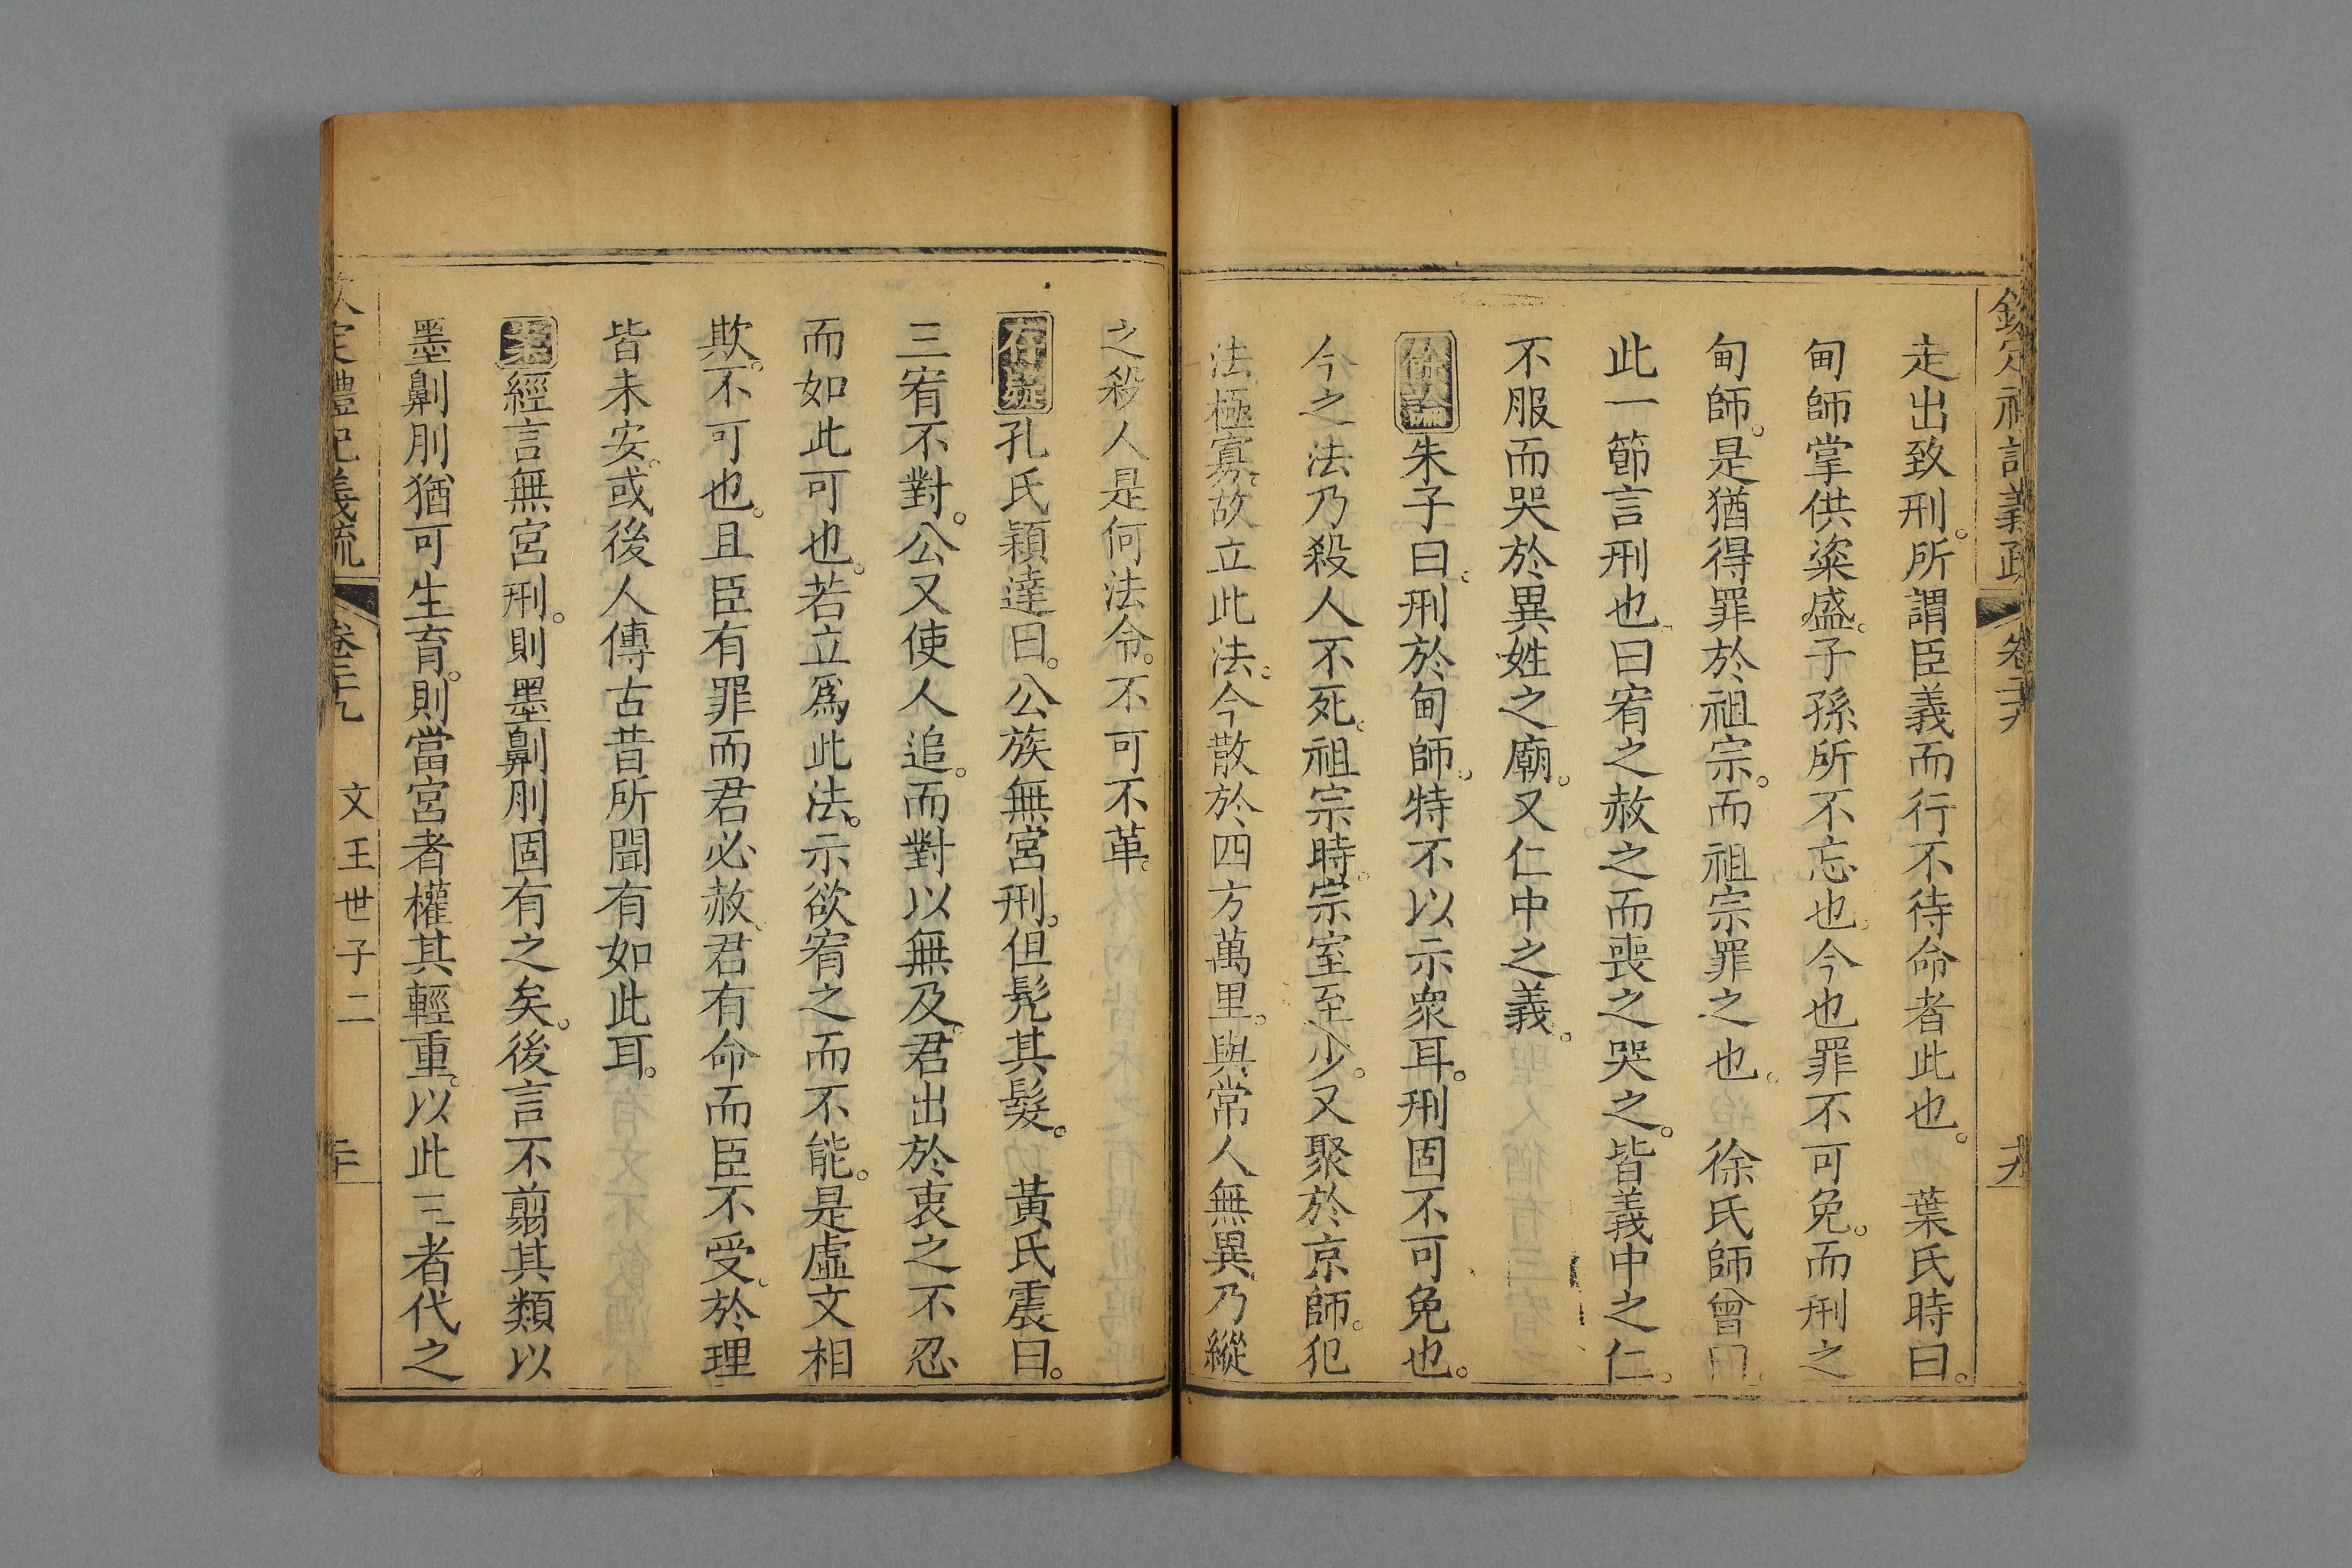 欽定禮記義疏 卷二十九 十九
走出致刑。所謂臣義而行不待命者此也。 葉氏時曰。
甸師掌供粢盛。子孫所不忘也。今也罪不可免。而刑之
甸師。是猶得罪於祖宗。而祖宗罪之也。 徐氏師曾曰。
此一節言刑也。曰宥之赦之而喪之哭之。皆義中之仁。
不服而哭於異姓之廟。又仁中之義。
餘論朱子曰。刑於甸師。特不以示衆耳。刑固不可免也。
今之法乃殺人不死。祖宗時。宗室至少。又聚於京師。犯
法極寡。故立此法。今散於四方萬里。與常人無異。乃縱
之殺人。是何法令。不可不革。
存疑孔氏穎達曰。公族無宮刑。但髡其髮。 黃氏震曰。
三宥不對。公又使人追。而對以無及。君出於衷之不忍
而如此可也。若立爲此法。示欲宥之而不能。是虛文相
欺。不可也。且臣有罪而君必赦。君有命而臣不受。於理
皆未安。或後人傳古昔所聞有如此耳。
案經言無宮刑。則墨劓刖固有之矣。後言不翦其類以
墨劓刖猶可生育。則當宮者權其輕重。以此三者代之
欽定禮記義疏 卷二十九 文王世子二 二十